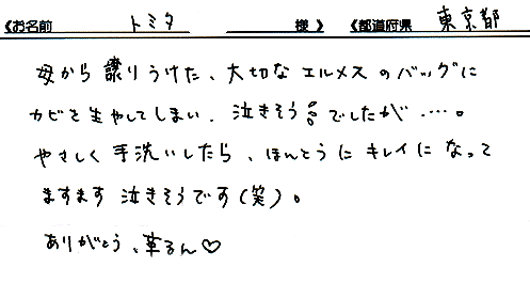 《お名前 トミタ 様》 《都道府県 東京都
母から譲りうけた、大切なエルメスのバッグに
カビを生やしてしまい、泣きそうでしたが….。
やさしく手洗いしたら、ほんとうにキレイになって
ますます泣きそうです(笑)。
ありがとう、革るん♡